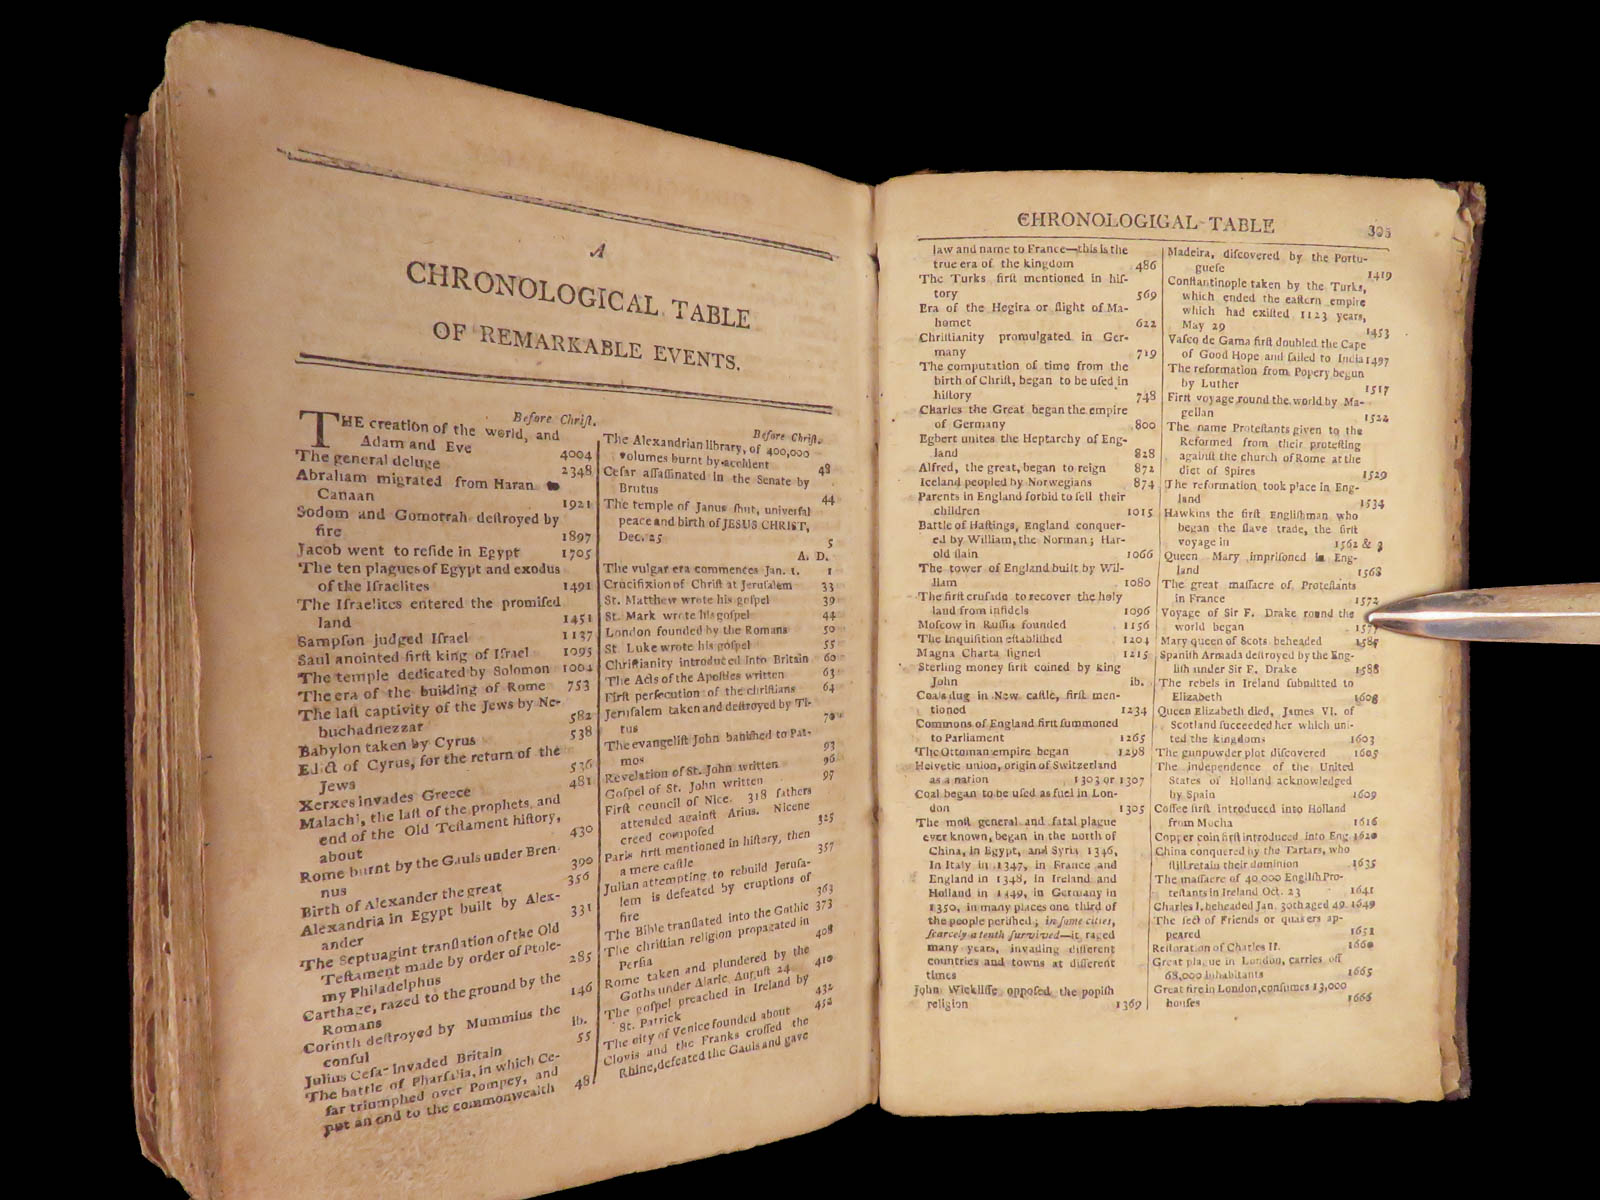 A
CHRONOLOGICAL TABLE
OF REMARKABLE EVENTS.
Before Chriſt.
THE creation of the world, and
Adam and Eve 4004
The general deluge 2348
Abraham migrated from Haran to
Canaan 1921
Sodom and Gomorrah deſtroyed by
fire 1897
Jacob went to reſide in Egypt 1705
The ten plagues of Egypt and exodus
of the Iſraelites 1491
The Iſraelites entered the promiſed
land 1451
Sampſon judged Iſrael 1137
Saul anointed firſt king of Iſrael 1095
The temple dedicated by Solomon 1004
The era of the building of Rome 753
The laſt captivity of the Jews by Ne-
buchadnezzar 582
Babylon taken by Cyrus 538
Edict of Cyrus, for the return of the
Jews 536
Xerxes invades Greece 481
Malachi, the laſt of the prophets, and
end of the Old Teſtament hiſtory,
about 430
Rome burnt by the Gauls under Bren-
nus 390
Birth of Alexander the great 356
Alexandria in Egypt built by Alex-
ander 331
The Septuagint tranſlation of the Old
Teſtament made by order of Ptole-
my Philadelphus 285
Carthage, razed to the ground by the
Romans 146
Corinth deſtroyed by Mummius the
conſul ib.
Julius Ceſar invaded Britain 55
The battle of Pharſalia, in which Ce-
ſar triumphed over Pompey, and
put an end to the commonwealth 48
Before Chriſt.
The Alexandrian library, of 400,000
volumes burnt by accident 48
Ceſar aſſaſſinated in the Senate by
Brutus 44
The temple of Janus ſhut, univerſal
peace and birth of JESUS CHRIST,
Dec. 25 5
A. D.
The vulgar era commences Jan. 1. 1
Crucifixion of Chriſt at Jeruſalem 33
St. Matthew wrote his goſpel 39
St. Mark wrote his goſpel 44
London founded by the Romans 50
St. Luke wrote his goſpel 55
Chriſtianity introduced into Britain 60
The Acts of the Apoſtles written 63
Firſt perſecution of the chriſtians 64
Jeruſalem taken and deſtroyed by Ti-
tus 70
The evangeliſt John baniſhed to Pat-
mos 93
Revelation of St. John written 96
Goſpel of St. John written 97
Firſt council of Nice. 318 fathers
attended againſt Arius. Nicene
creed compoſed 325
Paris firſt mentioned in hiſtory, then
a mere caſtle 357
Julian attempting to rebuild Jeruſa-
lem is defeated by eruptions of
fire 363
The Bible tranſlated into the Gothic 373
The chriſtian religion propagated in
Perſia 408
Rome taken and plundered by the
Goths under Alaric, Auguſt 24 410
The goſpel preached in Ireland by
St. Patrick 432
The city of Venice founded about 452
Clovis and the Franks croſſed the
Rhine, defeated the Gauls and gave
CHRONOLOGIGAL TABLE 305
law and name to France—this is the
true era of the kingdom 486
The Turks firſt mentioned in hiſ-
tory 569
Era of the Hegira or flight of Ma-
homet 622
Chriſtianity promulgated in Ger-
many 719
The computation of time from the
birth of Chriſt, began to be uſed in
hiſtory 748
Charles the Great began the empire
of Germany 800
Egbert unites the Heptarchy of Eng-
land 828
Alfred, the great, began to reign 872
Iceland peopled by Norwegians 874
Parents in England forbid to ſell their
children 1015
Battle of Haſtings, England conquer-
ed by William, the Norman; Har-
old ſlain 1066
The tower of England built by Wil-
liam 1080
The firſt cruſade to recover the holy
land from infidels 1096
Moſcow in Ruſſia founded 1156
The Inquiſition eſtabliſhed 1204
Magna Charta ſigned 1215
Sterling money firſt coined by king
John ib.
Coals dug in New caſtle, firſt men-
tioned 1234
Commons of England firſt ſummoned
to Parliament 1265
The Ottoman empire began 1298
Helvetic union, origin of Switzerland
as a nation 1303 or 1307
Coal began to be uſed as fuel in Lon-
don 1305
The moſt general and fatal plague
ever known, began in the north of
China, in Egypt, and Syria 1346,
In Italy in 1347, in France and
England in 1348, in Ireland and
Holland in 1449, in Germany in
1350, in many places one third of
the people periſhed; in ſome cities,
ſcarcely a tenth ſurvived—it raged
many years, invading different
countries and towns at different
times
John Wickliffe oppoſed the popiſh
religion 1369
Madeira, diſcovered by the Portu-
gueſe 1419
Conſtantinople taken by the Turks,
which ended the eaſtern empire
which had exiſted 1123 years,
May 29 1453
Vaſco de Gama firſt doubled the Cape
of Good Hope and ſailed to India 1497
The reformation from Popery begun
by Luther 1517
Firſt voyage round the world by Ma-
gellan 1522
The name Proteſtants given to the
Reformed from their proteſting
againſt the church of Rome at the
diet of Spires 1529
The reformation took place in Eng-
land 1534
Hawkins the firſt Engliſhman who
began the ſlave trade, the firſt
voyage in 1562 & 3
Queen Mary impriſoned in Eng-
land 1568
The great maſſacre of Proteſtants
in France 1572
Voyage of Sir F. Drake round the
world began
Mary queen of Scots beheaded 1587
Spaniſh Armada deſtroyed by the Eng-
liſh under Sir F. Drake 1588
The rebels in Ireland ſubmitted to
Elizabeth 1602
Queen Elizabeth died, James VI. of
Scotland ſucceeded her which uni-
ted the kingdoms 1603
The gunpowder plot diſcovered 1605
The independence of the United
States of Holland acknowledged
by Spain 1609
Coffee firſt introduced into Holland
from Mocha 1616
Copper coin firſt introduced into Eng 1620
China conquered by the Tartars, who
ſtill retain their dominion 1635
The maſſacre of 40,000 Engliſh Pro-
teſtants in Ireland Oct. 23 1641
Charles I. beheaded Jan. 30th aged 49. 1649
The ſect of Friends or quakers ap-
peared 1651
Reſtoration of Charles II. 1660
Great plague in London, carries off
68,000 inhabitants 1665
Great fire in London, conſumes 13,000
houſes 1666